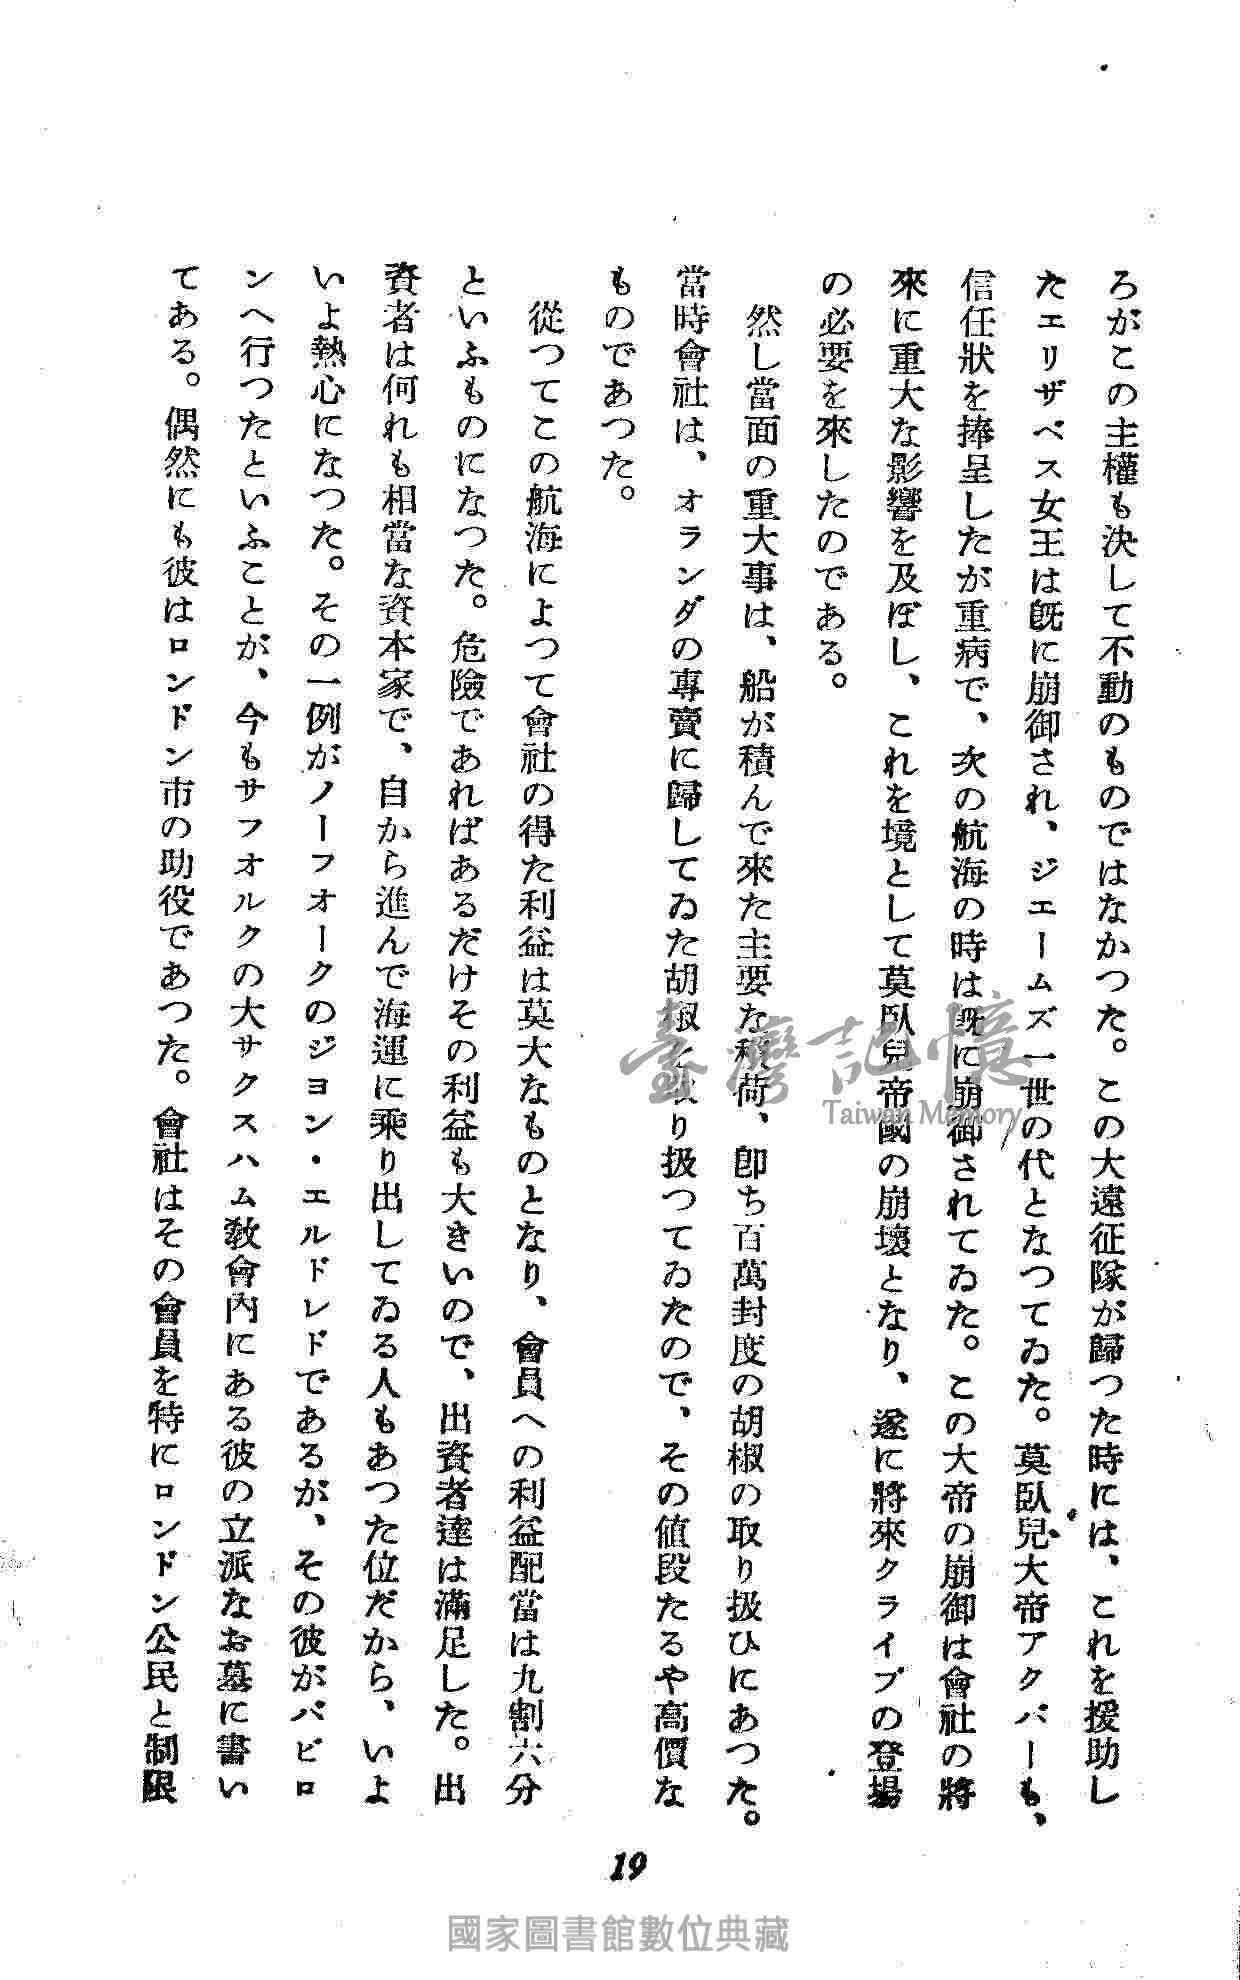 ろがこの主權も決して不動のものではなかつた。この大遠征隊が歸つた時には、これを援助し
たエリザベス女王は既に崩御され、ジエームズ一世の代となつてゐた。莫臥兒大帝アクバーも、
信任狀を捧呈したが重病で、次の航海の時は既に崩御されてゐた。この大帝の崩御は會社の將
來に重大な影響を及ぼし、これを境として莫臥兒帝國の崩壞となり、遂に將來クライブの登場
の必要を來したのである。
然し當面の重大事は、船が積んで來た主要な積荷、卽ち百萬封度の胡椒の取り扱ひにあつた。
當時會社は、オランダの專賣に歸してゐた胡椒を取り扱つてゐたので、その値段たるや高價な
ものであつた。
從つてこの航海によつて會社の得た利益は莫大なものとなり、會員への利益配當は九割六分
といふものになつた。危險であればあるだけその利益も大きいので、出資者達は滿足した。出
資者は何れも相當な資本家で、自から進んで海運に乘り出してゐる人もあつた位だから、いよ
いよ熱心になつた。その一例がノーフオークのジヨン・エルドレドであるが、その彼がバビロ
ンへ行つたといふことが、今もサフオルクの大サクスハム敎會內にある彼の立派なお墓に書い
てある。偶然にも彼はロンドン市の助役であつた。會社はその會員を特にロンドン公民と制限
19
臺灣記憶
Taiwan Memory
國家圖書館數位典藏